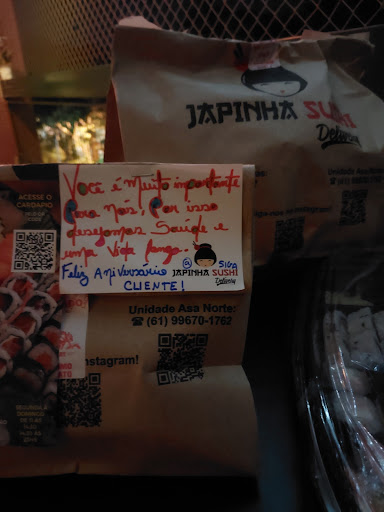 JAPINHA SUSHI
Delivery
Unidade Asa Norte:
ACESSE O
CARDÁPIO
Você é muito importante
Para nós, Por isso
desejamos Saúde e
uma vida longa.
@ SIGA
Feliz Aniversário
JAPINHA SUSHI
Delivery
CLIENTE!
Unidade Asa Norte:
☎ (61) 99670-1762
nstagram!
SEGUNDA A
DOMINGO